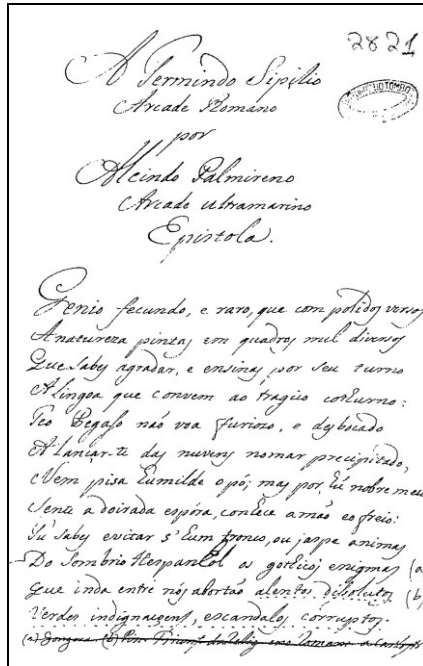 2821
A Termindo Sipilio
Arcade Romano
por
Alcindo Palmireno
Arcade ultramarino
Epistola.
Genio fecundo, e raro, que com polidos versos
A natureza pintas em quadros mil diversos
Que sabes agradar, e ensinas por seu turno
A lingoa que convem ao tragico coturno:
Teo Pegaso não voa furioso, e desbocado
A lançar-te das nuvens no mar precipitado,
Nem pisa humilde o pó; mas por hũ nobre meio
Sente a doirada espóra, conhece a mão e o freio:
Tu sabes evitar s'hum tronco, ou jaspe animas
Do sombrio Hespanhol os goticos enigmas (a
que inda entre nós abortão alentos dissolutos (b)
Verdes indignaçoens, escandalos corruptos.
(a) Gongora (b)